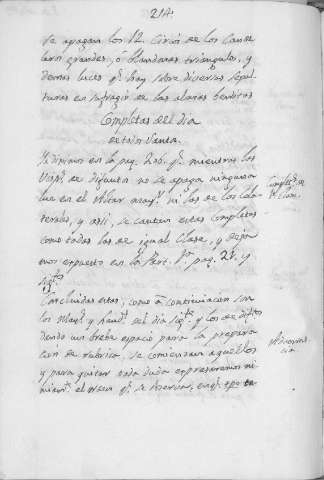 214.
se apagan los 12. Cirios de los Cande
leros grandes, ó blandones triangulos, y
demas luces qe. hay sobre diversas sepul
turas en sufragio de las almas benditas
Completas del dia
de todos Santos.
Ya dijimos en la pag. 210. qe. mientras las
Visps. de difuntos no se apaga ninguna
luz en el Altar mayr. ni las de los Cola
terales, y asi, se cantan estas Completas
como todas las de igual Clase, y deja
mos expuesto en la Part. 1a. pag. 28. y
sigtes.
Concluidas estas, como a continuacion son
los Mayts. y Lauds. del dia sigte. y los de difts.
dando un breve espacio para la prepara
cion de rubrica, se comienzan aquellos
y para quitar toda duda expresaremos
el que se observa,